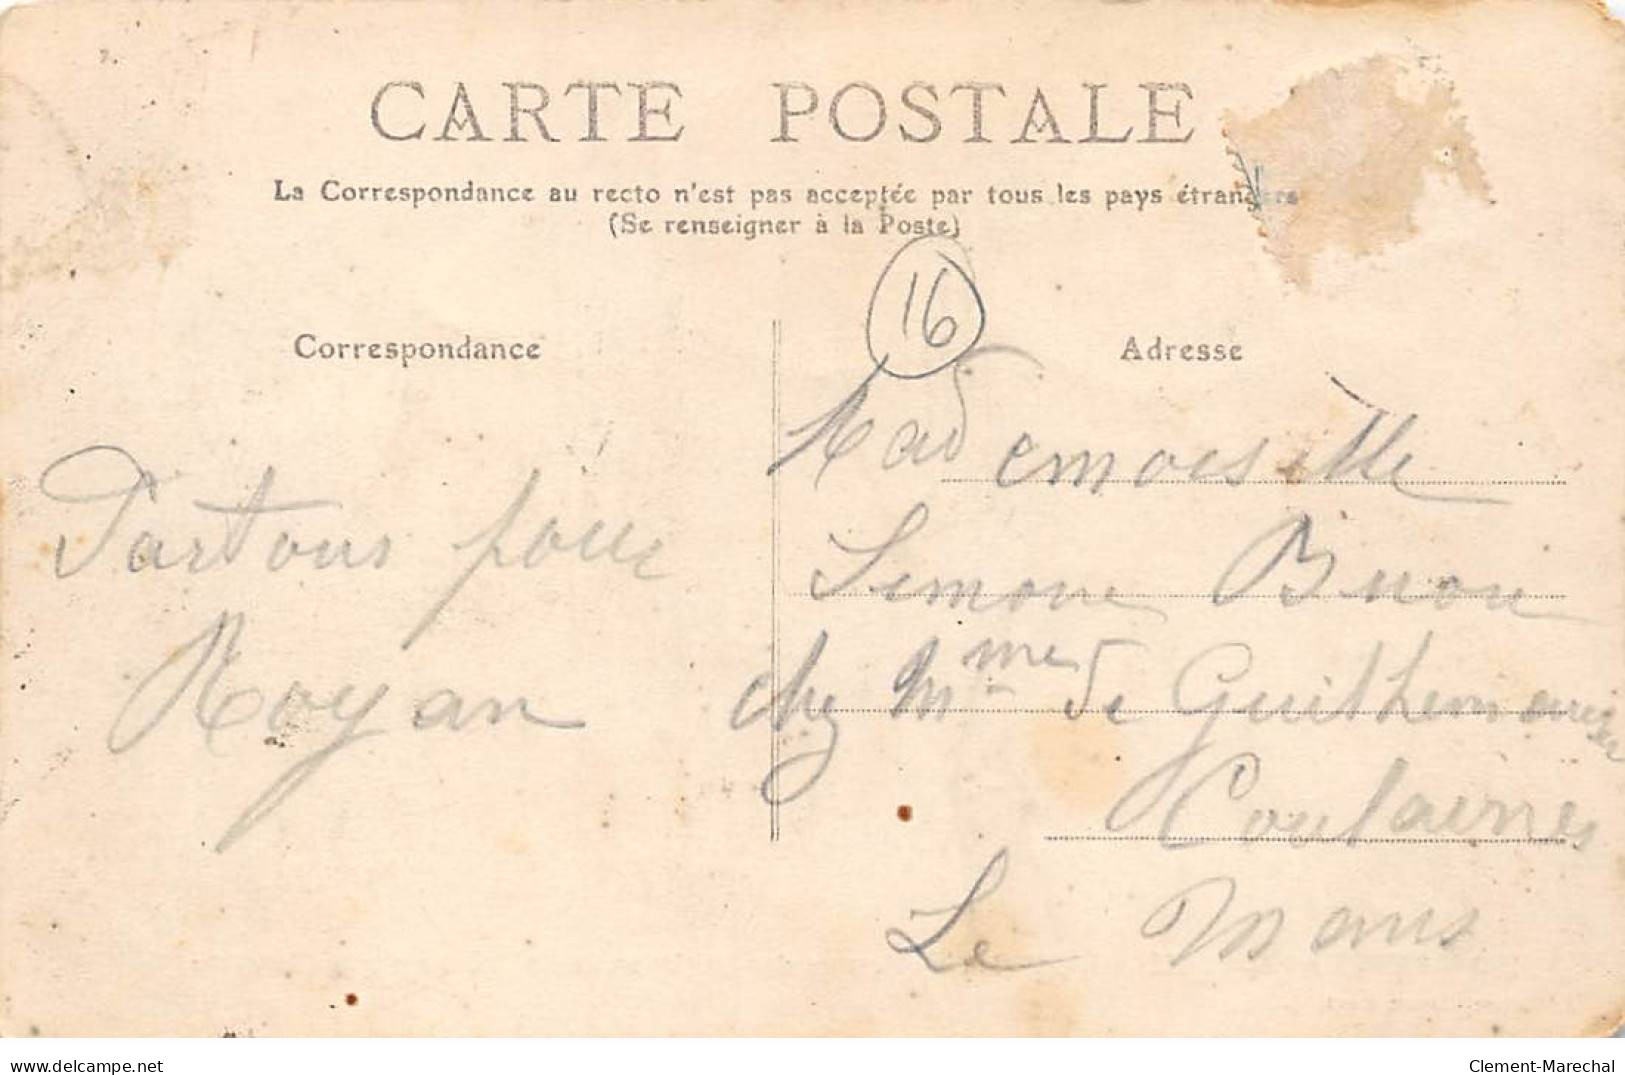 CARTE POSTALE
La Correspondance au recto n'est pas acceptée par tous les pays étrangers
(Se renseigner à la Poste)
16
Correspondance
Partons pour
Royan
Adresse
Mademoiselle
Simone
chez Mme de
Coulaines
Le Mans
www.delcampe.net
Clement-Marechal